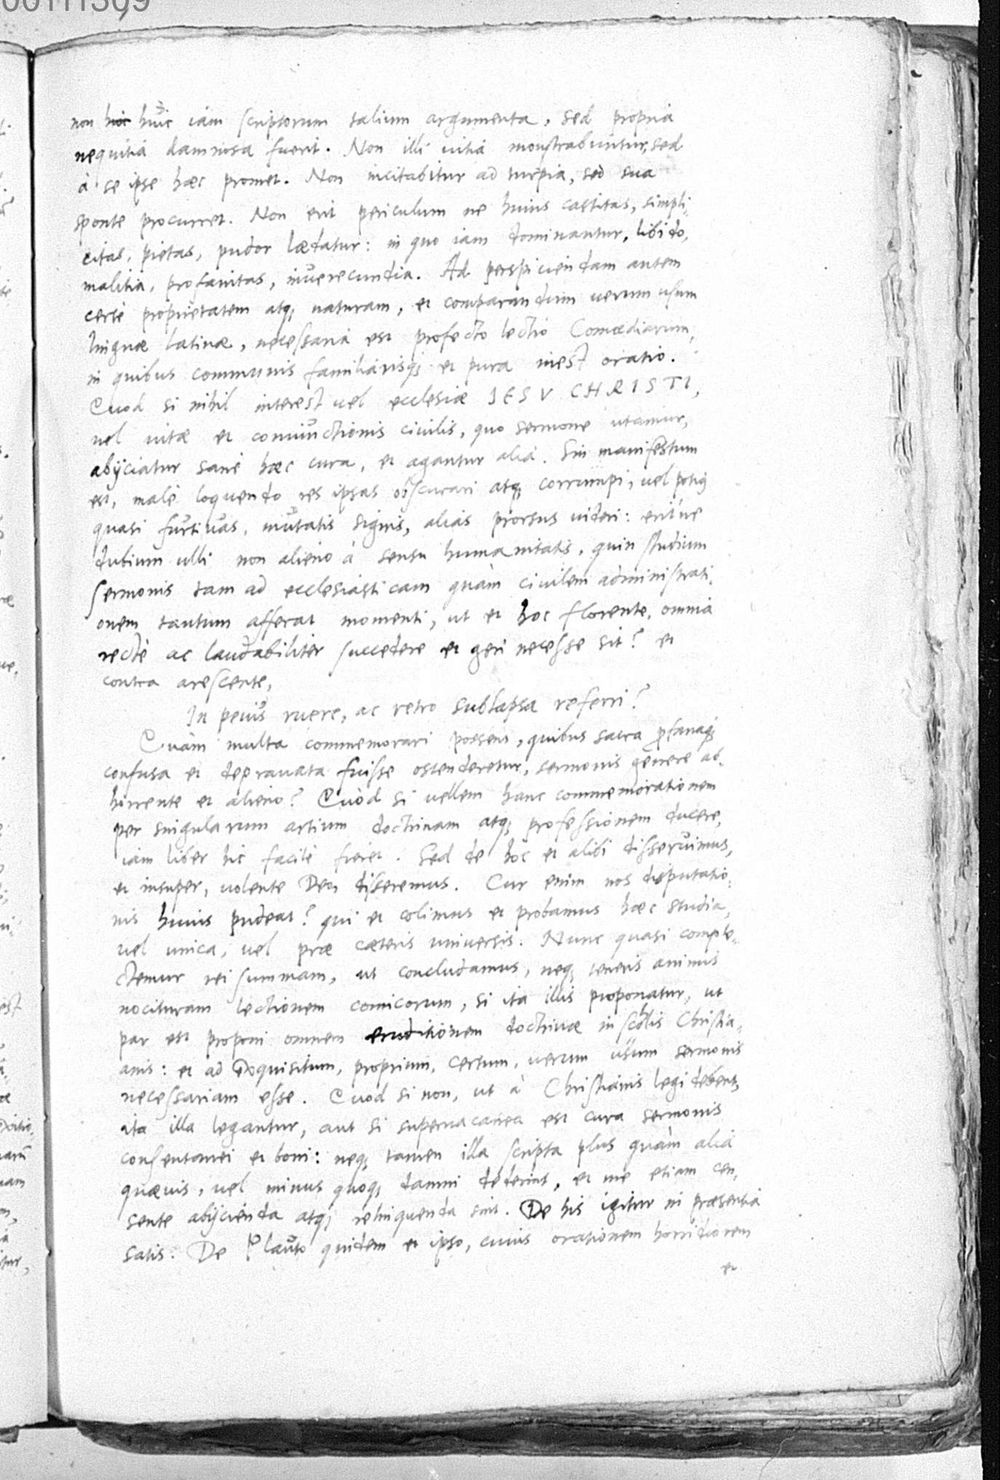 00111309
non huic iam scriptorum talium argumenta, sed propria
nequitia damnosa fuerit. Non illi vitia monstrabuntur, sed
à se ipse hæc promet. Non incitabitur ad turpia, sed sua
sponte procurret. Non erit periculum ne huius castitas, simpli-
citas, pietas, pudor lædatur: in quo iam dominantur, libido,
malitia, profanitas, inverecundia. Ad perspiciendam autem
certè proprietatem atq; naturam, et comparandum uerum usum
linguæ latinæ, necessaria est profecto lectio Comœdiarum,
in quibus communis familiarisq; et pura inest oratio.
Quod si nihil interest uel ecclesiæ IESV CHRISTI,
uel uitæ et coniunctionis ciuilis, quo sermone utamur,
abijciatur sanè hæc cura, et agantur alia. Sin manifestum
est, malè loquendo res ipsas obscurari atq; corrumpi, uel potius
quasi furtiuas, mutatis signis, alias prorsus uideri: eritne
dubium ulli non alieno à sensu humanitatis, quin studium
sermonis tam ad ecclesiasticam quàm ciuilem administrati-
onem tantum afferat momenti, ut et hoc florente, omnia
rectè ac laudabiliter succedere et geri necesse sit? et
contra arescente,
In peius ruere, ac retro sublapsa referri?
Quàm multa commemorari possent, quibus sacra profanaq;
confusa et deprauata fuisse ostenderetur, sermonis genere ab-
horrente et alieno? Quòd si uellem hanc commemorationem
per singularum artium doctrinam atq; professionem ducere,
iam liber hic facilè fieret. Sed de hoc et alibi disseruimus,
et insuper, uolente Deo disseremus. Cur enim nos disputatio-
nis huius pudeat? qui et colimus et probamus hæc studia,
uel unica, uel præ cæteris uniuersis. Nunc quasi comple-
ctemur rei summam, ut concludamus, neq; teneris animis
nocituram lectionem comicorum, si ita illis proponatur, ut
par est proponi omnem eruditionem doctrinæ in scolis Christia-
anis: et ad exquisitum, proprium, certum, uerum usum sermonis
necessariam esse. Quod si non, ut à Christianis legi debent,
ita illa legantur, aut si superuacanea est cura sermonis
consentanei et boni: neq; tamen illa scripta plus quàm alia
quæuis, uel minus quoq; damni dederint, et me etiam cen-
sente abijcienda atq; relinquenda sint. De his igitur in præsentia
satis. De Plauto quidem et ipso, cuius orationem horridiorem
et